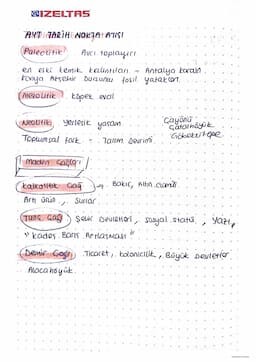 İZELTAŞ
AYT TARİH NOKTA ATIŞI
Paleolitik Avcı toplayıcı
en eski temik kalıntıları - Antalya karain
Konya Akşehir Dursunlu fosil yatakları
Mezolitik köpek evcil
Neolitik Yerleşik yaşam
Çayönü
Çatalhöyük
Göbeklitepe
Toplumsal fark - Tarım Devrimi
Maden Çağları
Kalkolitik Çağ → Bakır, Altın
Artı ürün, Surlar
Tunç Çağı Şehir Devletleri, sosyal statü, Yazı,
"Kadeş Barış Antlaşması"
Demir Çağı Ticaret, kolonicilik, Büyük Devletler
Alacahöyük.